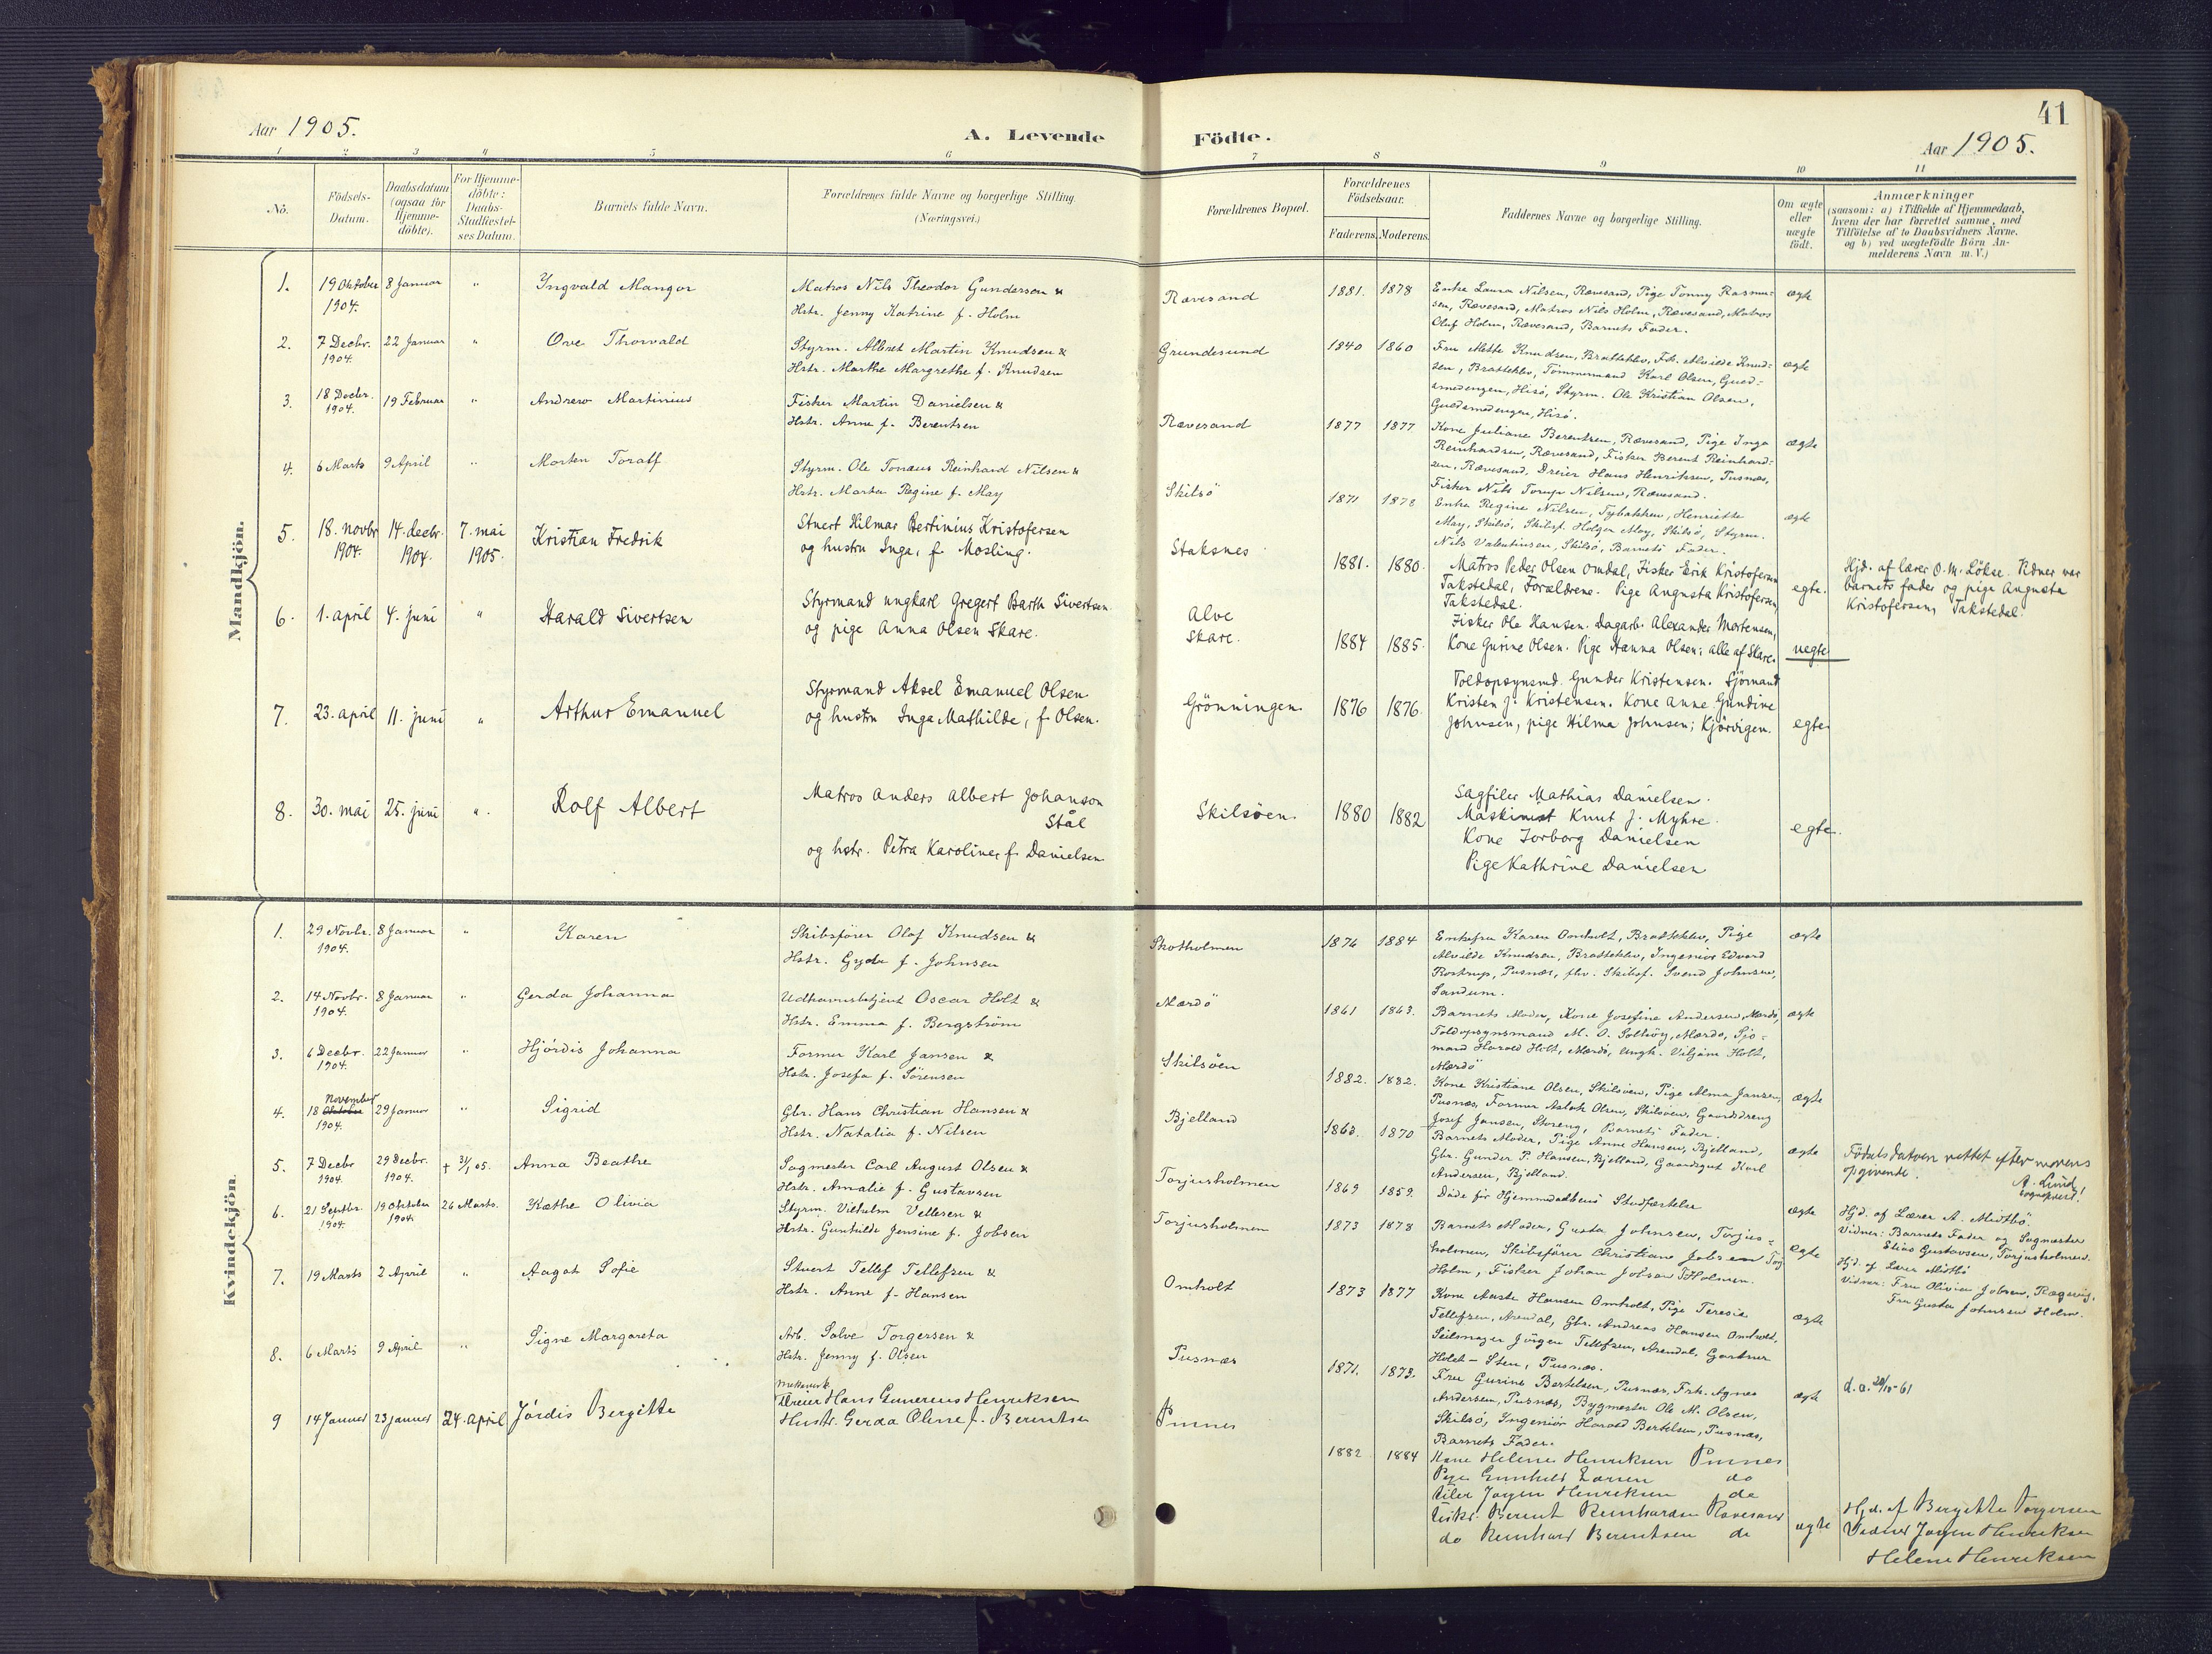 41
Aar 1905.
A. Levende Födte.
Aar 1905.
1 2 3 4 5 6 7 8 9 10 11
No.
Födsels-
Datum.
Daabsdatum
(ogsaa for
Hjemme-
döbte).
For Hjemme-
döbte:
Daabs-
Stadfæstel-
ses Datum.
Barnets fulde Navn.
Forældrenes fulde Navne og borgerlige Stilling
(Næringsvei.)
Forældrenes Bopæl.
Forældrenes
Födselsaar.
Faderens. Moderens.
Faddernes Navne og borgerlige Stilling.
Om ægte
eller
uægte
födt.
Anmærkninger
(saasom: a) i Tilfælde af Hjemmedaab,
hvem der har forrettet samme, med
Tilföielse af to Daabsvidners Navne,
og b) ved uægtefödte Börn An-
melderens Navn m. V.)
Mandkjön.
1. 19 Oktober 8 Januar " Ingvald Mangor
1904.
Matros Nils Theodor Gundersen &
Hstr. Jenny Katrine f. Holm
Rævesand 1881. 1878
Enke Laura Nilsen, Rævesand, Pige Tonny Rasmus-
sen, Rævesand, Matros Nils Holm, Rævesand, Matros
Oluf Holm, Rævesand, Barnets Fader.
ægte
2. 7 Decbr. 22 Januar " Ove Thorvald
1904.
Styrm. Albret Martin Knudsen &
Hstr. Marthe Margrethe f. Knudsen
Grundesund 1840 1860
Fru Mette Knudsen, Bratteklev, Frk. Alvilde Knud-
sen, Bratteklev, Tömmermand Karl Olsen, Guld-
smedengen, Hisö, Styrm. Ole Kristian Olsen,
Guldsmedengen, Hisö.
ægte
3. 18 Decbr. 19 Februar " Andrew Martinius
1904.
Fisker Martin Danielsen &
Hstr. Anne f. Berentsen
Rævesand 1877 1877
Kone Juliane Berentsen, Rævesand, Pige Inga
Reinhardsen, Rævesand, Fisker Berent Reinhard-
sen, Rævesand, Dreier Hans Henriksen, Pusnæs,
Fisker Nils Torup Nilsen, Rævesand.
ægte
4. 6 Marts 9 April " Morten Toralf
Styrm. Ole Tonæus Reinhard Nilsen &
Hstr. Marta Regine f. May
Skilsö 1871 1878
Enke Regine Nilsen, Tybakken, Henriette
May, Skilsö, Skibsf. Holger May, Skilsö, Styrm.
Nils Valentinsen, Skilsö, Barnets Fader.
ægte
5. 18. novbr 14. decbr. 7. mai Kristian Fredrik
1904. 1904. 1905.
Stuert Hilmar Bertinius Kristofersen
og hustru Inga, f. Mosling.
Staksnes 1881. 1880.
Matros Peder Olsen Omdal, Fisker Erik Kristofersen
Takstedal, Forældrene. Pige Augusta Kristofersen,
Takstedal.
egte.
Hjd. af lærer O. M. Lökse. Vidner var
barnets fader og pige Augusta
Kristofersen, Takstedal.
6. 1. april 4. juni " Harald Sivertsen
Styrmand ungkarl Gregert Barth Sivertsen
og pige Anna Olsen Skare.
Alve
Skare. 1884 1885.
Fisker Ole Hansen. Dagarb. Alexander Mortensen,
Kone Gurine Olsen. Pige Hanna Olsen; alle af Skare.
uegte
7. 23. april 11. juni " Arthur Emanuel
Styrmand Aksel Emanuel Olsen
og hustru Inga Mathilde, f. Olsen.
Grönningen. 1876 1876.
Toldopsynsmd. Gunder Kristensen. Sjömand
Kristen J. Kristensen. Kone Anne Gundine
Johnsen, pige Hilma Johnsen; Kjörvigen.
egte
8. 30. mai 25. juni ". Rolf Albert
Matros Anders Albert Johanson
Stål
og hstr. Petra Karoline, f. Danielsen
Skilsöen. 1880 1882
Sagfiler Mathias Danielsen.
Maskinist Knut J. Myhre.
Kone Torborg Danielsen
Pige Kathrine Danielsen
egte.
Kvindekjön.
1. 29 Novbr. 8 Januar " Karen
1904.
Skibsförer Olaf Knudsen &
Hstr. Gyda f. Johnsen
Skotholmen 1876 1884
Enkefru Karen Omholt, Bratteklev, Pige
Alvilde Knudsen, Bratteklev, Ingeniör Edvard
Rostrup, Pusnæs, fhv. Skibsf. Svend Johnsen,
Sandum.
ægte
2. 14 Novbr. 8 Januar " Gerda Johanna
1904.
Udhavnsbetjent Oscar Holt &
Hstr. Emma f. Bergström
Mærdö 1861 1863.
Barnets Moder, Kone Josefine Andersen, Mærdö,
Toldopsynsmand M. O. Solkvig, Mærdö, Sjö-
mand Harald Holt, Mærdö, Ungk. Viljam Holt,
Mærdö
ægte
3. 6 Decbr. 22 Januar " Hjördis Johanna
1904.
Former Karl Jansen &
Hstr. Josefa f. Sörensen
Skilsöen 1882. 1882.
Kone Kristiane Olsen, Skilsöen, Pige Alma Jansen,
Pusnæs, Former Aslak Olsen, Skilsöen, Gaardsdreng
Josef Jansen, Storeng, Barnets Fader.
ægte
4. 18 Oktober 29 Januar " Sigrid
November
1904.
Gbr. Hans Christian Hansen &
Hstr. Natalia f. Nilsen
Bjelland 1863. 1870
Barnets Moder, Pige Anne Hansen, Bjelland,
Gbr. Gunder P. Hansen, Bjelland, Gaardsgut Karl
Andersen, Bjelland.
ægte
Födselsdatoen rettet efter morens
opgivende.
A. Lund
sogneprest!
5. 7 Decbr 29 Decbr. + 31/1 05. Anna Beathe
1904. 1904.
Sagmester Carl August Olsen &
Hstr. Amalie f. Gustavsen
Torjusholmen 1869 1859.
Döde för Hjemmedaabens Stadfæstelse
ægte
Hjd. af Lærer A. Midtbö.
Vidner: Barnets Fader og Sagmester
Elias Gustavsen, Torjusholmen.
6. 21 Septbr. 19 Oktober 26 Marts. Kathe Olivia
1904. 1904.
Styrm. Vilhelm Vellesen &
Hstr. Gunhilde Jensine f. Jobsen
Torjusholmen 1873 1878
Barnets Moder, Gusta Johnsen, Torjus-
holmen, Skibsförer Christian Jobsen Torj
Holm, Fisker Johan Jobsen THolmen.
egte
Hjd. af Lærer Midtbö
Vidner: Fru Olivia Jobsen, Rægevig,
Fru Gusta Johnsen Holm.
7. 19 Marts 2 April " Aagot Sofie
Stuert Tellef Tellefsen &
Hstr. Anne f. Hansen
Omholt 1873 1877
Kone Aaste Hansen Omholt, Pige Teresie
Tellefsen, Arendal, Gbr. Andreas Hansen Omholt,
Seilmager Jörgen Tellefsen, Arendal, Gartner
Holst-Sten, Pusnæs.
ægte
8. 6 Marts 9 April " Signe Margareta
Arb. Salve Torgersen &
Hstr. Jenny f. Olsen
Pusnæs 1871. 1873.
Fru Gurine Bertelsen, Pusnæs, Frk. Agnes
Andersen, Pusnæs, Bygmester Ole M. Olsen,
Skilsö, Ingeniör Harald Bertelsen, Pusnæs,
Barnets Fader.
ægte
9 14 Januar 23 januar 24. april Jördis Bergitte
Dreier Hans Gunerius Henriksen
Hustr. Gerda Oline f. Berentsen
1882 1884
Kone Helene Henriksen
Pige Gunhild Larsen do
Filer Jörgen Henriksen do
Fisker Berent Reinhardsen Rævesand
do Reinhard Berentsen do
ægte
Hjd. af Bergitte Torgersen
Vidner Jörgen Henriksen
Helene Henriksen